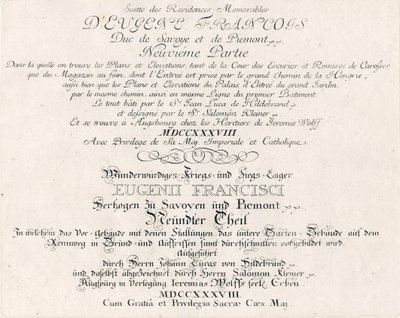 Suitte des Residences Memorables
D'EUGENE FRANCOIS
Duc de Savoye et de Piemont
Neuvieme Partie
Dans la quelle on trouve les Plans et Elevations, tant de la Cour des Ecuries et Remises de Carosses
que du Magazin au foin, dont l'Entrée est prise par le grand chemin de la Hongrie,
aussi bien que les Plans et Elevations du Palais d'Entrée du grand Jardin,
par le mesme chemin, ainsi en mesme Ligne du premier Batiment.
Le tout bâti par le Sr. Jean Luca de Hildebrand
et dessigné par le Sr. Salomon Kleiner
Et se trouve a Augsbourg chez les Heritiers de Jeremie Wolff
MDCCXXXVIII
Avec Privilege de Sa Maj. Imperiale et Catholique
Wunderwürdiges Kriegs- und Siegs-Lager
EUGENII FRANCISCI
Herzogen zu Savoyen und Piemont
Neündter Theil
In welchem das Vor-Gebäude mit denen Stallungen, das untere Garten-Gebäude auf dem
Rennweg in Grund- und Auffrissen samt Durchschnitten vorgebildet wird
Aufgeführt
durch Herrn Johann Lucas von Hildebrand
und daselbst abgezeichnet durch Herrn Salomon Kleiner
Augspurg in Verlegung Jeremias Wolffs seel. Erben.
MDCCXXXVIII.
Cum Gratiâ et Privilegio Sacræ Cæs. Maj.